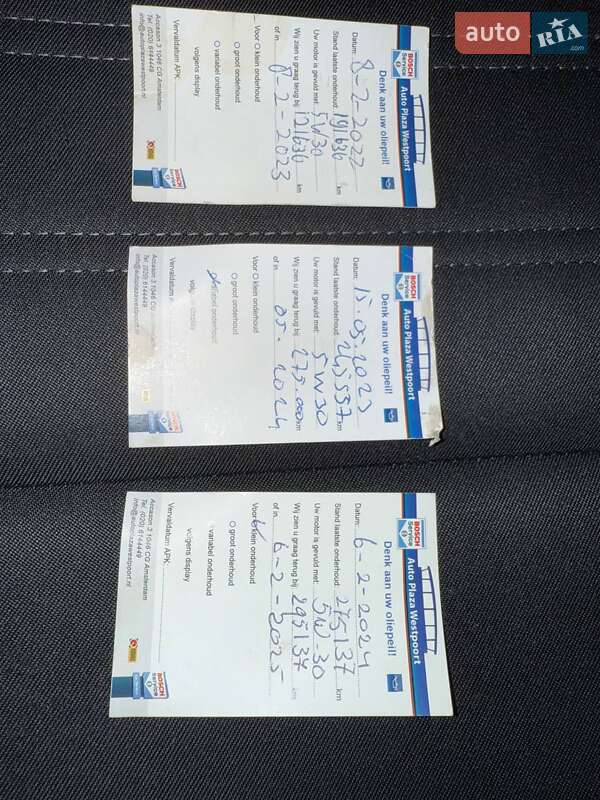 auto RIA.com
BOSCH Service
Auto Plaza Westpoort
Denk aan uw oliepeil!
Datum: 8-2-2022
Stand laatste onderhoud: 191.636 km
Uw motor is gevuld met: 5W30
Wij zien u graag terug bij: 121636 km
of in 8-2-2023
Voor O klein onderhoud
O groot onderhoud
O variabel onderhoud
volgens display
Vervaldatum APK:
Accason 3 1046 CG Amsterdam
Tel. (020) 6144449
info@autoplazawestpoort.nl
BOSCH Service
BOSCH Service
Auto Plaza Westpoort
Denk aan uw oliepeil!
Datum: 15.05.2023
Stand laatste onderhoud: 245557 km
Uw motor is gevuld met: 5W30
Wij zien u graag terug bij: 275.000 km
of in 05-2024
Voor O klein onderhoud
O groot onderhoud
variabel onderhoud
volgens display
Vervaldatum
Accason 3 1046 CG
Tel. (020) 6144449
info@autoplazawestpoort
BOSCH Service
Auto Plaza Westpoort
Denk aan uw oliepeil!
Datum: 6-2-2024
Stand laatste onderhoud: 275137 km
Uw motor is gevuld met: 5W-30
Wij zien u graag terug bij: 295137 km
of in 6-2-2025
Voor klein onderhoud
O groot onderhoud
variabel onderhoud
volgens display
Vervaldatum APK:
Accason 3 1046 CG Amsterdam
Tel. (020) 6144449
info@autoplazawestpoort.nl
BOSCH Service